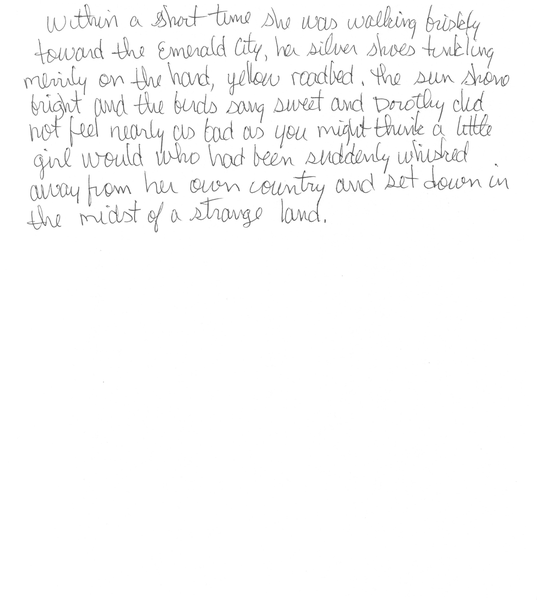 Within a short time she was walking briskly
toward the Emerald City, her silver shoes tinkling
merrily on the hard, yellow roadbed. The sun shone
bright and the birds sang sweet and Dorothy did
not feel nearly as bad as you might think a little
girl would who had been suddenly whisked
away from her own country and set down in
the midst of a strange land.